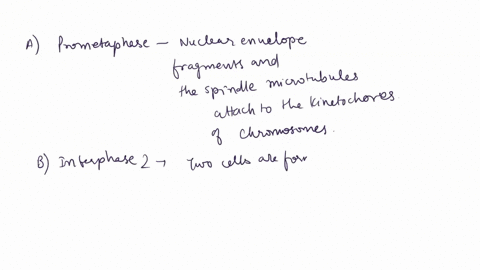 A) Prometaphase — Nuclear envelope
fragments and
the spindle microtubules
attach to the kinetochores
of chromosomes.
B) Interphase 2 → Two cells are for